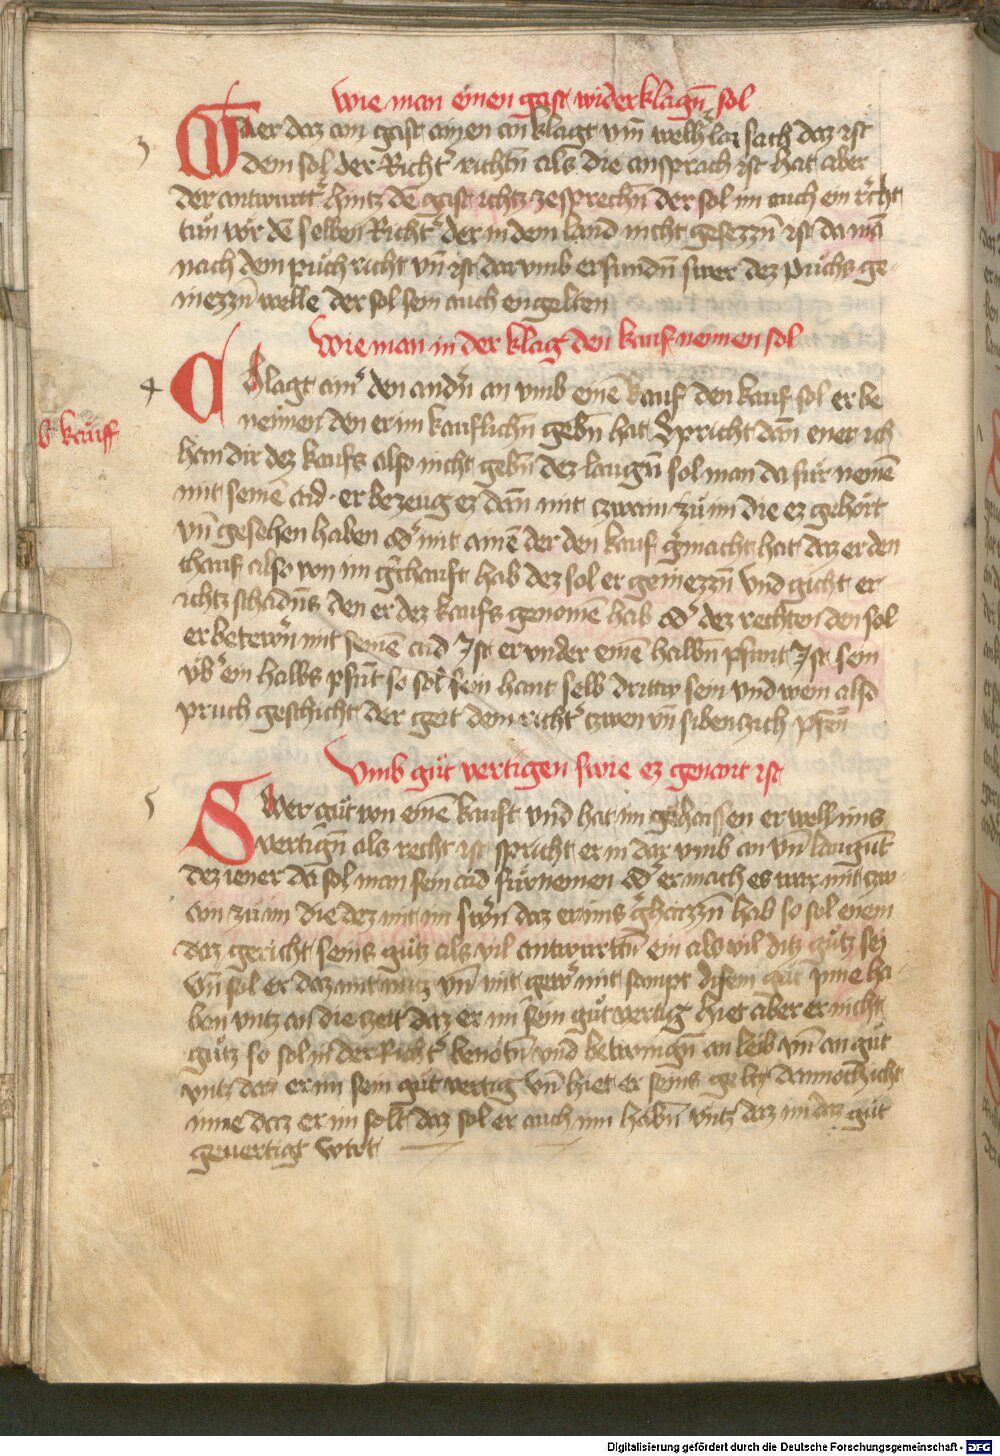 Wie man einen gast widerklagn̄ sol
3 Swer daz ain gast ainen an klagt vm̄ welh̕lai sach daz ist
dem sol der Richt̕ richtn̄ als die ansprach ist hat aber
der antwurt̕ hintz dē gast ichtz zesprechn̄ der sol im auch ein r̕cht
tuͤn vor dē selben Richt̕ der in dem land nicht gesezzn̄ ist da mā
nach dem puͤch richt vn̄ ist dar vmb erfundn̄ swer dez puͤchs ge-
niezzn̄ welle der sol sein auch engelten
Wie man in der klag den kauf nennen sol
4 Chlagt ain̕ den andn̄ an vmb einē kauf den kauf sol er be
nennen den er im kauflichn̄ gebn̄ hat Spricht dān ener ich
han dir dez kaufs also nicht gebn̄ dez laugn̄ sol man da fuͤr nemē
mit seinē aid er bezeug ez dān mit zwain zuͤ im die ez gehoͤrt
b kauff
vn̄ gesehen haben od̕ mit ainē der den kauf gemacht hat daz er den
chauf also von im g̕chauft hab dez sol er geniezzn̄ vnd gicht er
ichtz schadn̄s den er dez kaufs genomē hab od̕ dez rechten den sol
er betewrn̄ mit seinē aid Ist er vnder einē halbn̄ pfunt Ist sein
vb̕ ein halbs pfūt so sol sein hant selb dritew sein vnd wem also
pruch geschicht der geit dem richt̕ zwen vn̄ sibenczich pfen̄
Vmb guͤt vertigen swie ez genant ist
5 Swer guͤt von einē kauft vnd hat im gehaissen er well ims
vertign̄ als recht ist spricht er in dar vmb an vn̄ laugnt
dez iener da sol man sein aid fuͤr nemen od̕ er mach es war mit zw-
ain zuͤ im die dez mit im swͤrn daz er ims g̕haizzn̄ hab so sol enem
daz gericht seins guͤtz als vil antwurttn̄ ein als vil ditz guͤtz sei
vn̄ sol er daz mit nutz vn̄ mit gewer mit sampt disem guͤt inne ha-
ben vntz an die zeit daz er im sein guͤt vertig hiet aber er nicht
guͤtz so sol in der Richt̕ benoͤtn̄ vnd betwingn̄ an leib vn̄ an guͤt
vntz daz er im sein guͤt vertig vn̄ hiet er seins geltz dannoch icht
inne daz er im solt daz sol er auch inn habn̄ vntz daz im daz guͤt
geuertigt wirt
Digitalisierung gefördert durch die Deutsche Forschungsgemeinschaft - DFG